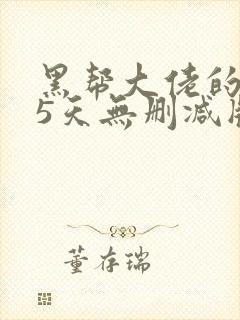 黑帮大佬的
5天無删减
董存瑞